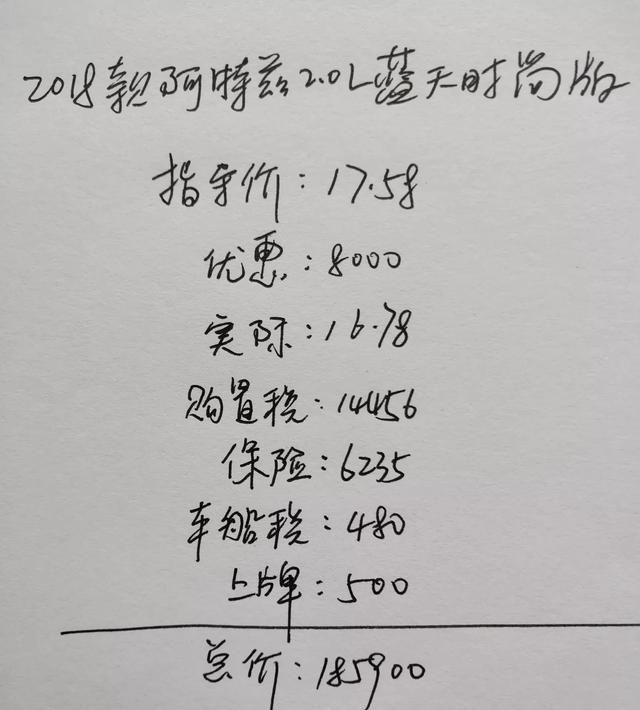 2018款阿特兹2.0L蓝天时尚版
指导价:17.58
优惠:8000
实际:16.78
购置税:14456
保险:6235
车船税:480
上牌:500
总价:185900